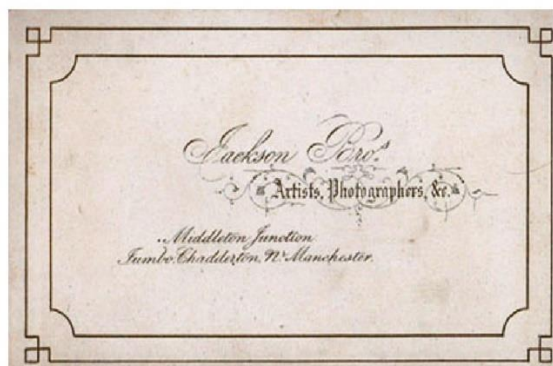 Jackson Bros
Artists, Photographers, &c.
Middleton Junction
Jumbo. Chadderton, Nr Manchester.